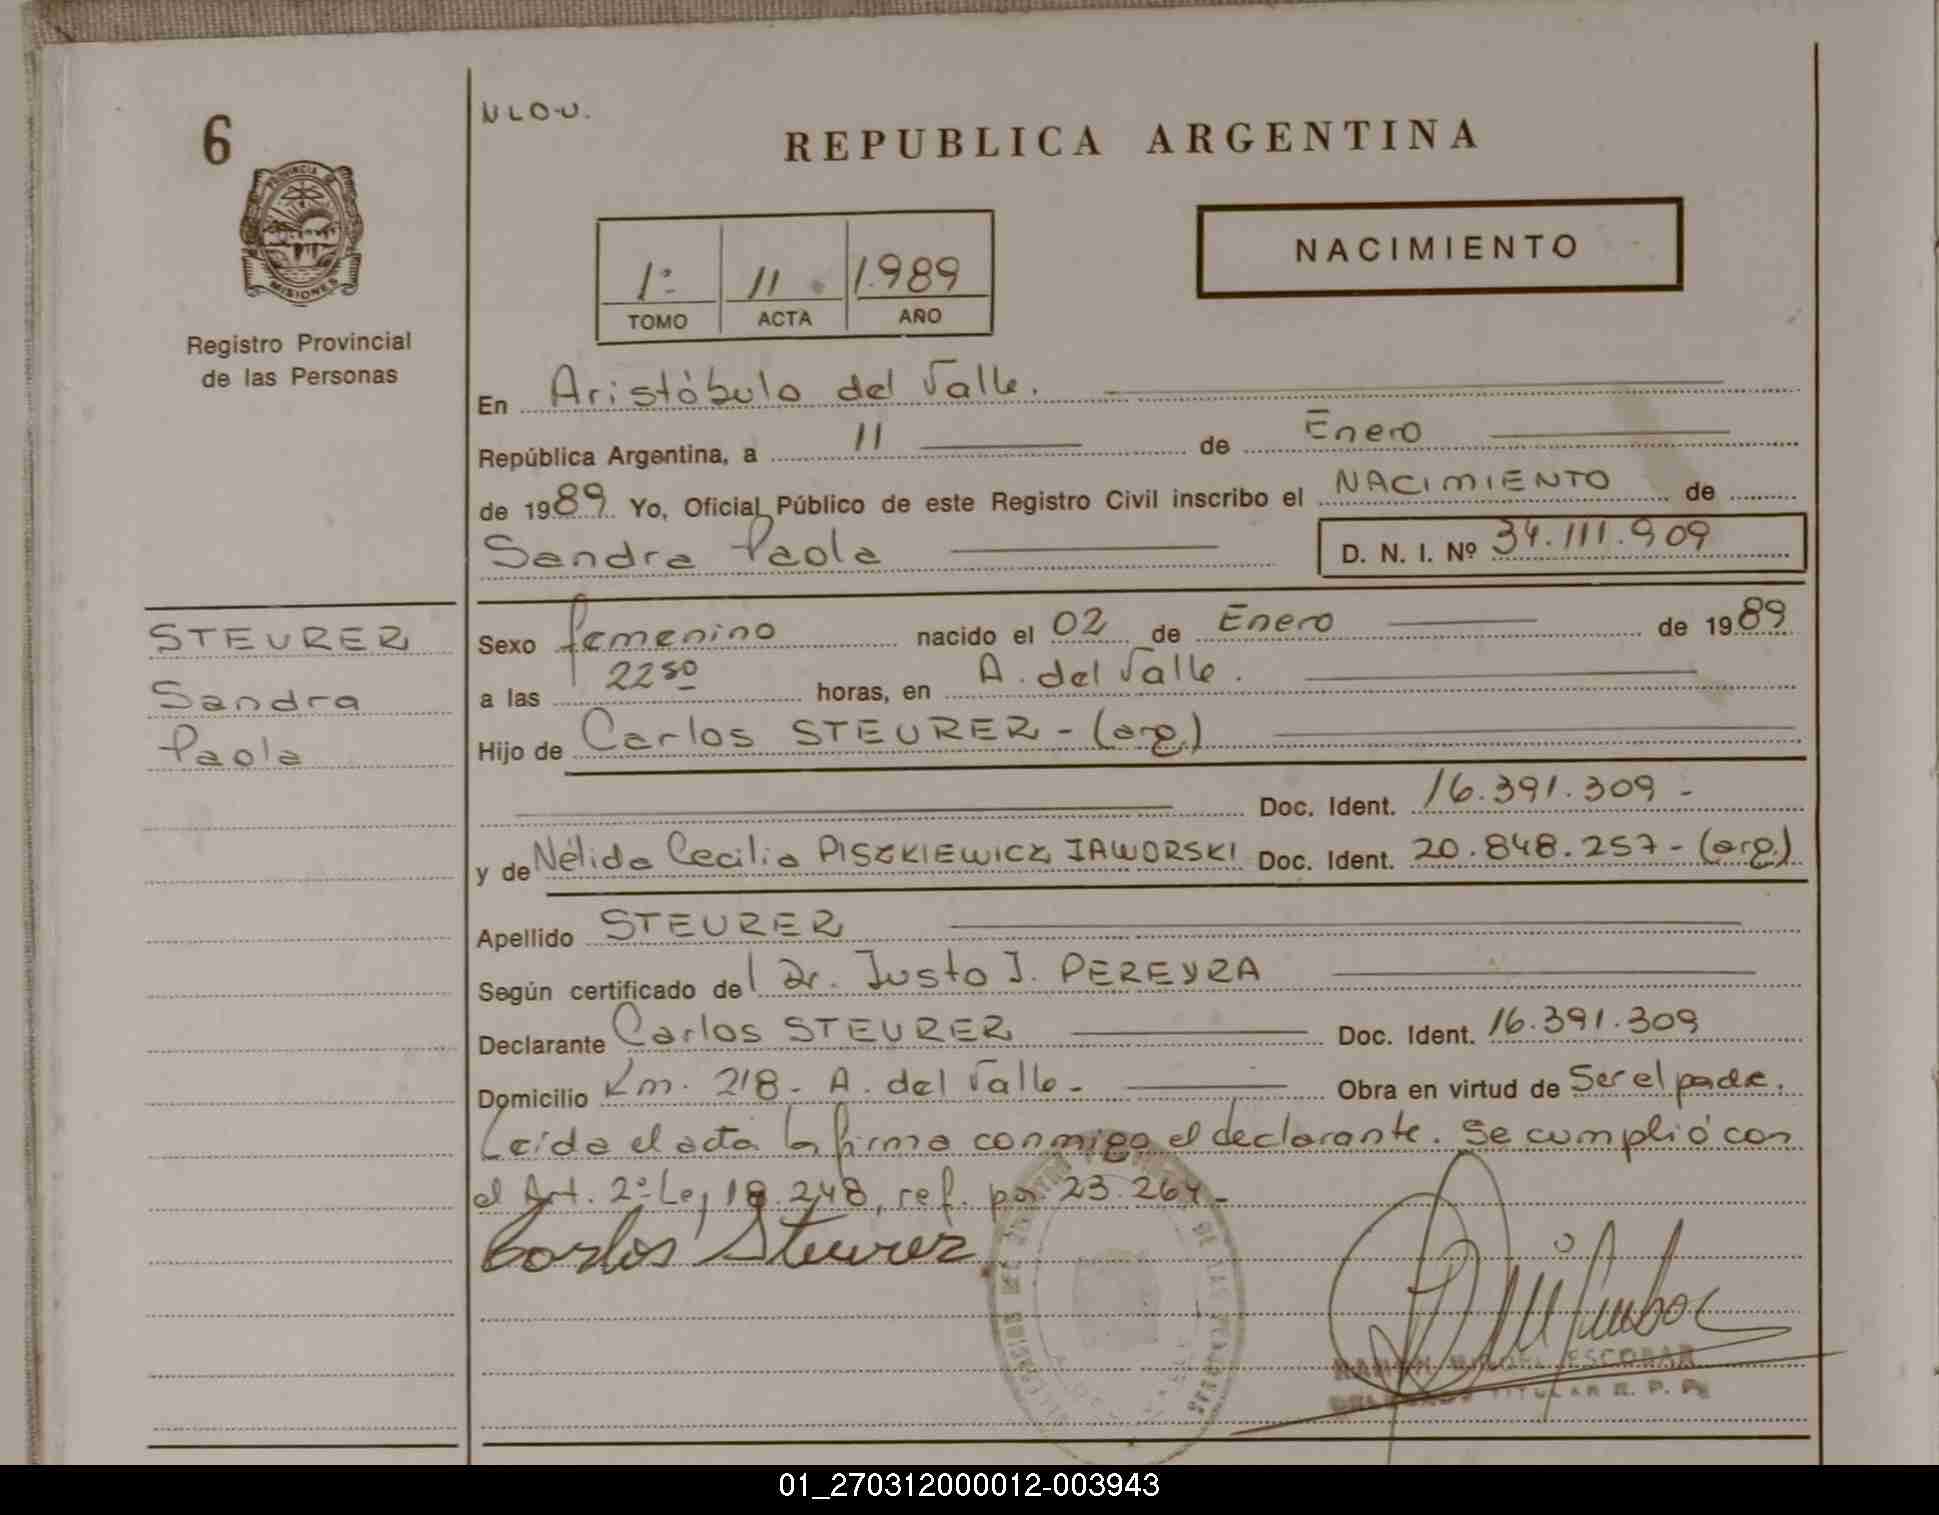 6
PROVINCIA DE
MISIONES
Registro Provincial
de las Personas
STEURER
Sandra
Paola
N L O-U.
REPUBLICA ARGENTINA
NACIMIENTO
1º 11 1.989
TOMO ACTA AÑO
En Aristóbulo del Valle.
República Argentina, a 11 de Enero
de 1989. Yo, Oficial Público de este Registro Civil inscribo el NACIMIENTO de
Sandra Paola D. N. I. Nº 34.111.909
Sexo femenino nacido el 02 de Enero de 1989
a las 22 50 horas, en A. del Valle.
Hijo de Carlos STEURER - (arg.)
Doc. Ident. 16.391.309 -
y de Nélida Cecilia PISZKIEWICZ JAWORSKI Doc. Ident. 20.848.257 - (arg.)
Apellido STEURER
Según certificado del Dr. Justo J. PEREYRA
Declarante Carlos STEURER Doc. Ident. 16.391.309
Domicilio Km. 218 - A. del Valle - Obra en virtud de Ser el padre.
Leída el acta la firma conmigo el declarante. Se cumplió con
el Art. 2º Ley 18.248, ref. por 23.264 -
Carlos Steurer
RAMON MIGUEL ESCOBAR
DELEGADO TITULAR R. P. P.
01_270312000012-003943